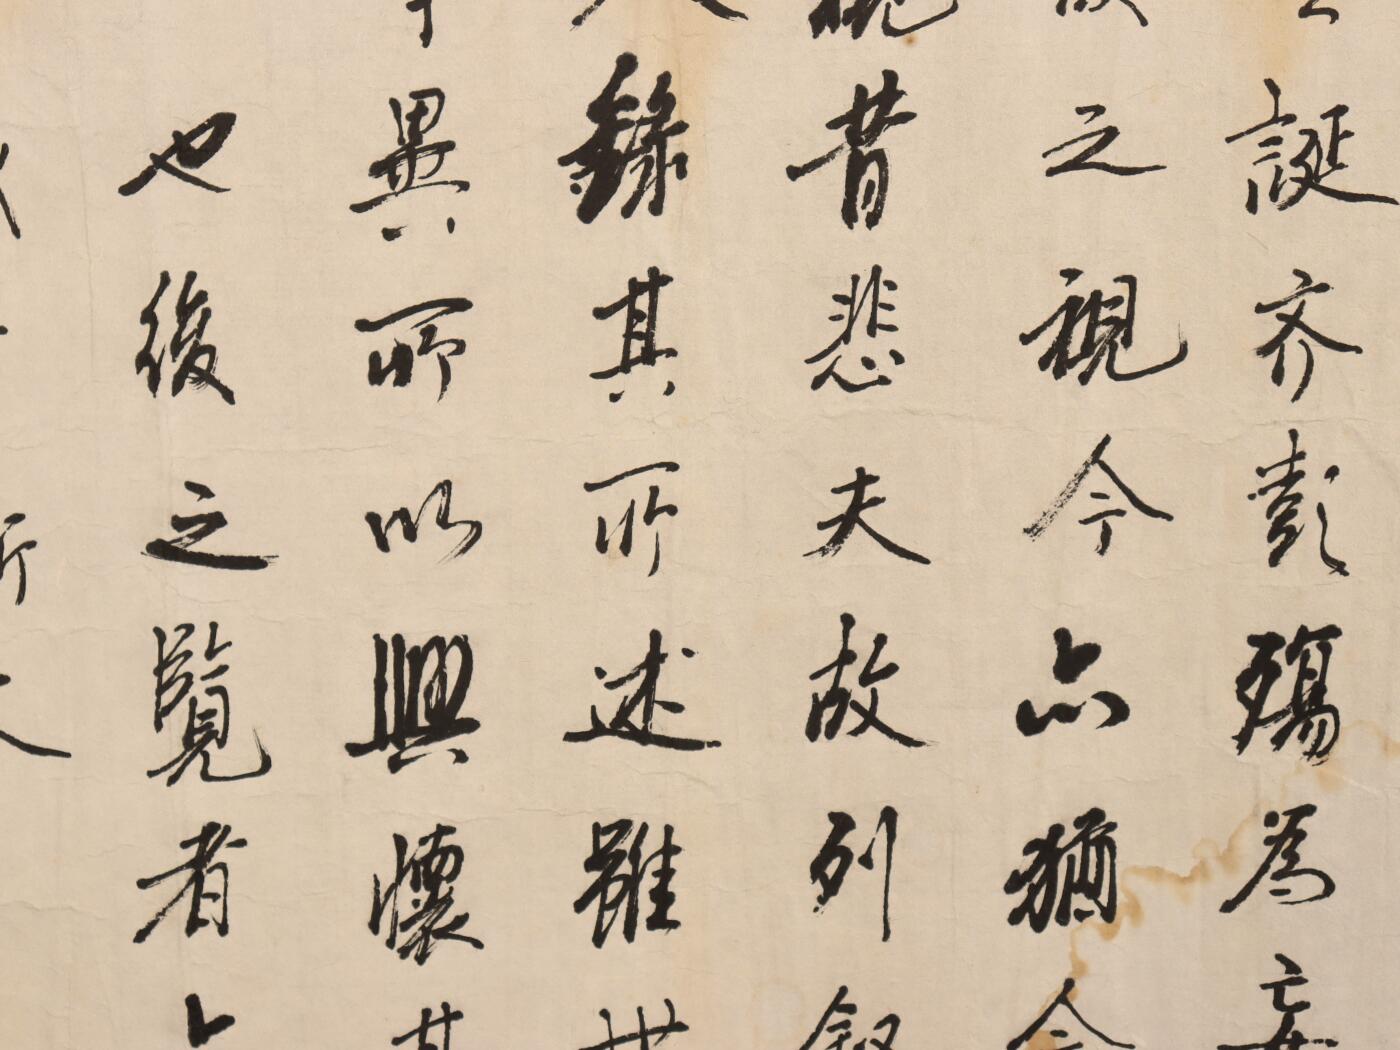 誕齐彭殤為妄
之視今亦猶今
視昔悲夫故列叙
人錄其所述雖世
異所以興懷其
也後之覽者